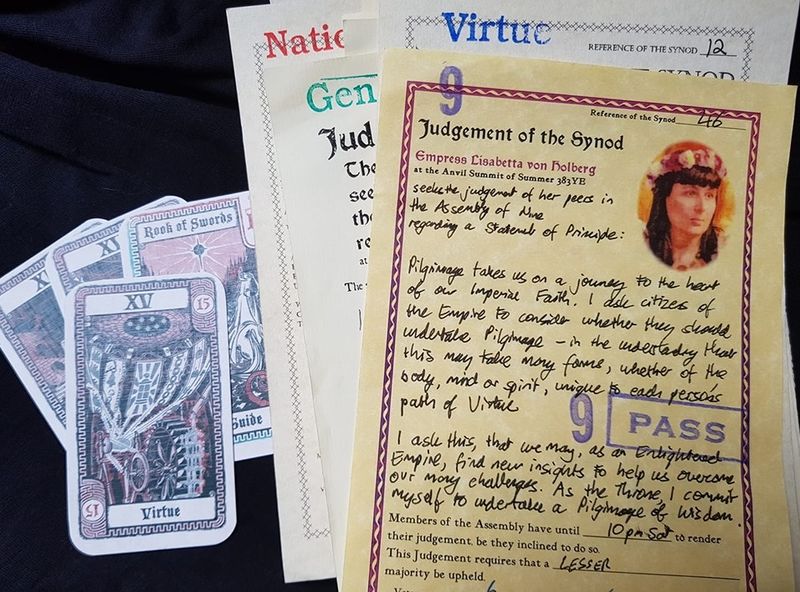 Natio
Gen
Jud
The
see
the
re
at
The
Virtue
REFERENCE OF THE SYNOD 12
SYNOD
9
Reference of the Synod 46
Judgement of the Synod
Empress Lisabetta von Holberg
at the Anvil Summit of Summer 383YE
seeks the judgement of her peers in
the Assembly of Nine
regarding a Statement of Principle:
Pilgrimage takes us on a journey to the heart
of our Imperial Faith. I ask citizens of
the Empire to consider whether they should
undertake Pilgrimage – in the understanding that
this may take many forms, whether of the
body, mind or spirit, unique to each person's
path of Virtue
9 PASS
I ask this, that we may, as an Enlightened
Empire, find new insights to help us overcome
our many challenges. As the Throne, I commit
myself to undertake a Pilgrimage of Wisdom.
Members of the Assembly have until 10pm Sat to render
their judgement, be they inclined to do so.
This Judgement requires that a LESSER
majority be upheld.
X
XI
Rook of Swords
Guide
XV
15
Virtue
15